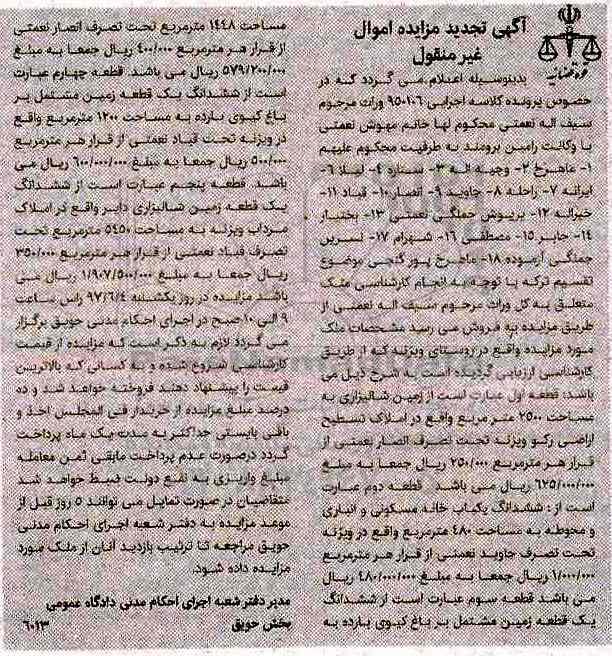 آگهی تجدید مزایده اموال
غیر منقول
قوه قضائیه
بدینوسیله اعلام می گردد که در
خصوص پرونده کلاسه اجرایی ۹۵۰۱۰۶ وراث مرحوم
سیف اله نعمتی محکوم لها خانم مهوش نعمتی
با وکالت رامین برومند به طرفیت محکوم علیهم
۱- ماهرخ ۲- وجیه اله ۳- ستاره ۴- لیلا ۶-
ایرانه ۷- راحله ۸- جاوید ۹- انصار ۱۰- قباد ۱۱-
خیراله ۱۲- پریوش جملگی نعمتی ۱۳- بختیار
۱۴- جابر ۱۵- مصطفی ۱۶- شهرام ۱۷- نسرین
جملگی آزموده ۱۸- ماهرخ پور گنجی موضوع
تقسیم ترکه با توجه به انجام کارشناسی ملک
متعلق به کل وراث مرحوم سیف اله نعمتی از
طریق مزایده به فروش می رسد مشخصات ملک
مورد مزایده واقع در روستای ویزنه که از طریق
کارشناسی ارزیابی گردیده است به شرح ذیل می
باشد: قطعه اول عبارت است از زمین شالیزاری به
مساحت ۲۵۰۰ متر مربع واقع در املاک تسطیح
اراضی رکو ویزنه تحت تصرف انصار نعمتی از
قرار هر مترمربع ۲۵۰/۰۰۰ ریال جمعا به مبلغ
۶۲۵/۰۰۰/۰۰۰ ریال می باشد . قطعه دوم عبارت
است از : ششدانگ یکباب خانه مسکونی و انباری
و محوطه به مساحت ۴۸۰ مترمربع واقع در ویزنه
تحت تصرف جاوید نعمتی از قرار هر مترمربع
۱/۰۰۰/۰۰۰ ریال جمعا به مبلغ ۴۸۰/۰۰۰/۰۰۰ ریال
می باشد قطعه سوم عبارت است از ششدانگ
یک قطعه زمین مشتمل بر باغ کیوی بارده به
مساحت ۱۴۴۸ مترمربع تحت تصرف انصار نعمتی
از قرار هر مترمربع ۴۰۰/۰۰۰ ریال جمعا به مبلغ
۵۷۹/۲۰۰/۰۰۰ ریال می باشد. قطعه چهارم عبارت
است از ششدانگ یک قطعه زمین مشتمل بر
باغ کیوی بارده به مساحت ۱۲۰۰ مترمربع واقع
در ویزنه تحت قباد نعمتی از قرار هر مترمربع
۵۰۰/۰۰۰ ریال جمعا به مبلغ ۶۰۰/۰۰۰/۰۰۰ ریال می
باشد. قطعه پنجم عبارت است از ششدانگ
یک قطعه زمین شالیزاری دایر واقع در املاک
مرداب ویزنه به مساحت ۵۴۵۰ مترمربع تحت
تصرف قباد نعمتی از قرار هر مترمربع ۳۵۰/۰۰۰
ریال جمعا به مبلغ ۱/۹۰۷/۵۰۰/۰۰۰ ریال می
باشد مزایده در روز یکشنبه ۹۷/۶/۴ راس ساعت
۹ الی ۱۰ صبح در اجرای احکام مدنی حویق برگزار
می گردد لازم به ذکر است که مزایده از قیمت
کارشناسی شروع شده و به کسانی که بالاترین
قیمت را پیشنهاد دهند فروخته خواهد شد و ده
درصد مبلغ مزایده از خریدار فی المجلس اخذ و
باقی بایستی حداکثر به مدت یک ماه پرداخت
گردد درصورت عدم پرداخت مابقی ثمن معامله
مبلغ واریزی به نفع دولت ضبط خواهد شد
متقاضیان در صورت تمایل می توانند ۵ روز قبل از
موعد مزایده به دفتر شعبه اجرای احکام مدنی
حویق مراجعه تا ترتیب بازدید آنان از ملک مورد
مزایده داده شود.
مدیر دفتر شعبه اجرای احکام مدنی دادگاه عمومی
بخش حویق
۶۰۱۳